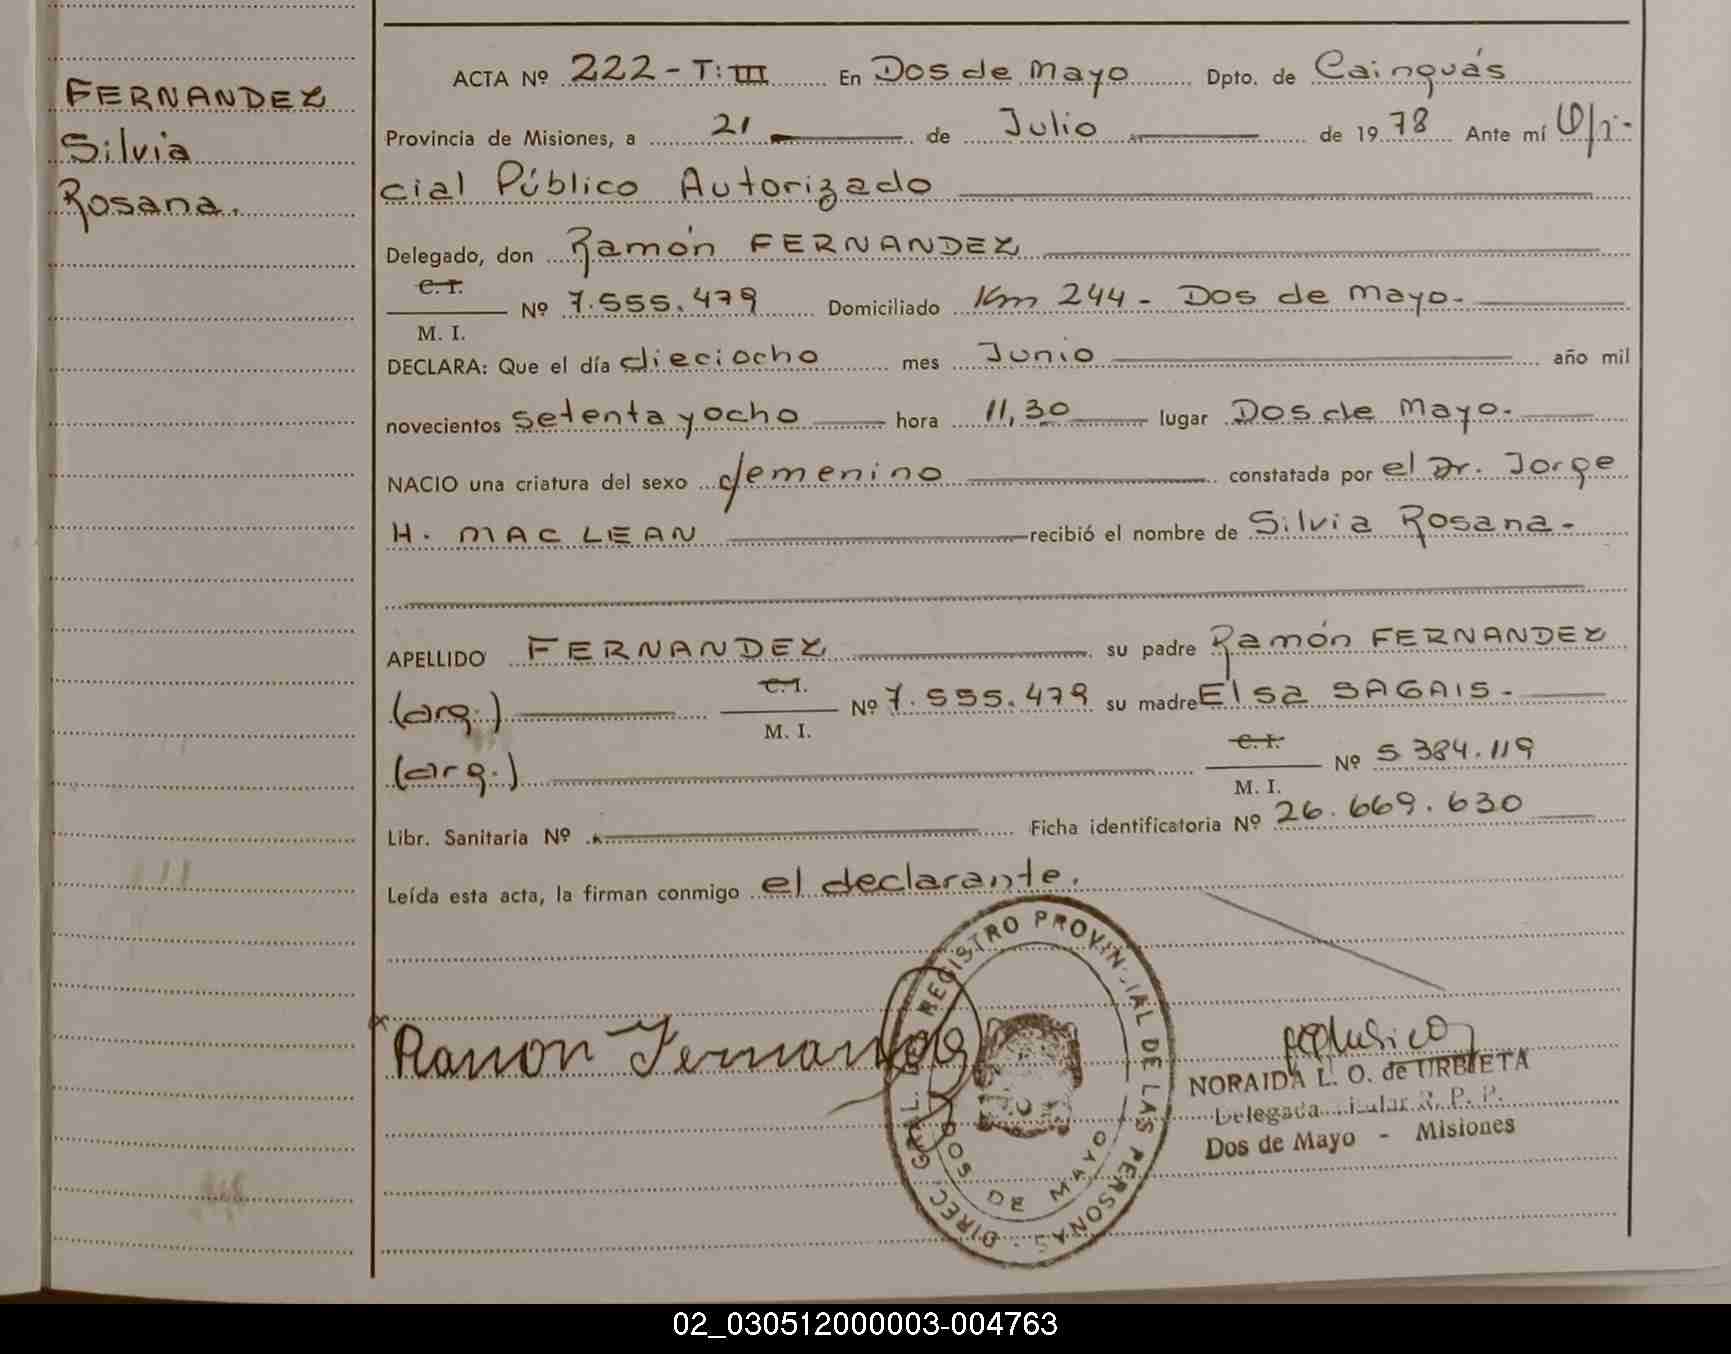 FERNANDEZ
Silvia
Rosana.
ACTA Nº 222-T:III En Dos de Mayo Dpto. de Cainguás
Provincia de Misiones, a 21 de Julio de 1978 Ante mí Ofi-
cial Público Autorizado
Delegado, don Ramón FERNANDEZ
C. I.
M. I.
Nº 7.555.479 Domiciliado Km 244- Dos de Mayo-
DECLARA: Que el día dieciocho mes Junio año mil
novecientos setenta y ocho hora 11,30 lugar Dos de Mayo.
NACIO una criatura del sexo femenino constatada por el Dr. Jorge
H. MAC LEAN recibió el nombre de Silvia Rosana-
APELLIDO FERNANDEZ su padre Ramón FERNANDEZ
(arg.) C. I. M. I. Nº 7.555.479 su madre Elsa SAGAIS-
(arg.) C. I. M. I. Nº 5 384.119
Libr. Sanitaria Nº Ficha identificatoria Nº 26.669.630
Leída esta acta, la firman conmigo el declarante.
Ramon Fernandes
DIREC. GRAL. DEL REGISTRO PROVINCIAL DE LAS PERSONAS
DOS DE MAYO
NORAIDA L. O. de URBIETA
Delegada Titular R. P. P.
Dos de Mayo - Misiones
02_030512000003-004763